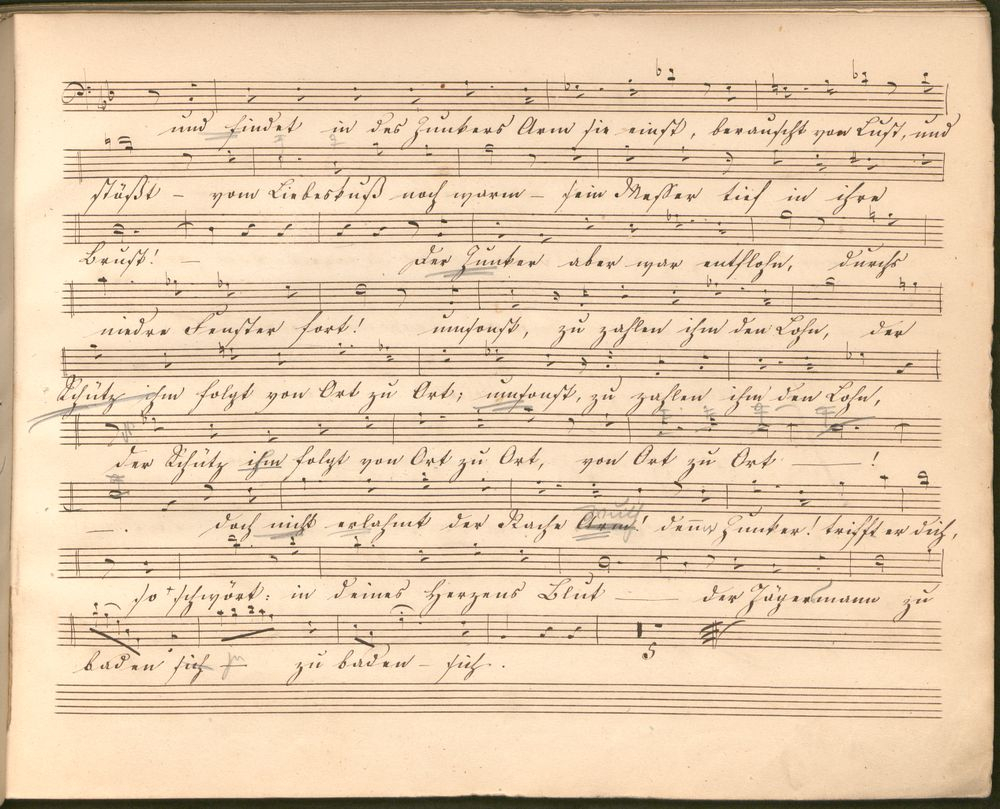 und findet in des Junkers Arm sie einst, berauscht von Lust, und
stößt – vom Liebeskuß noch warm – sein Messer tief in ihre
Brust! – Der Junker aber war entflohn, durchs
niedre Fenster fort! umsonst, zu zahlen ihm den Lohn, der
Schütz ihm folgt von Ort zu Ort; umsonst, zu zahlen ihm den Lohn,
der Schütz ihm folgt von Ort zu Ort, von Ort zu Ort – !
– . doch nicht erlahmt der Rache Arm! denn Junker! trifft er dich,
so schwört: in deines Herzens Blut – der Jägersmann zu
baden sich zu baden – sich.
5